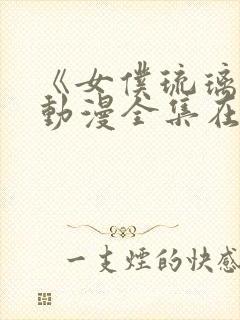 《女僕琉璃
動漫全集在
一支煙的快感